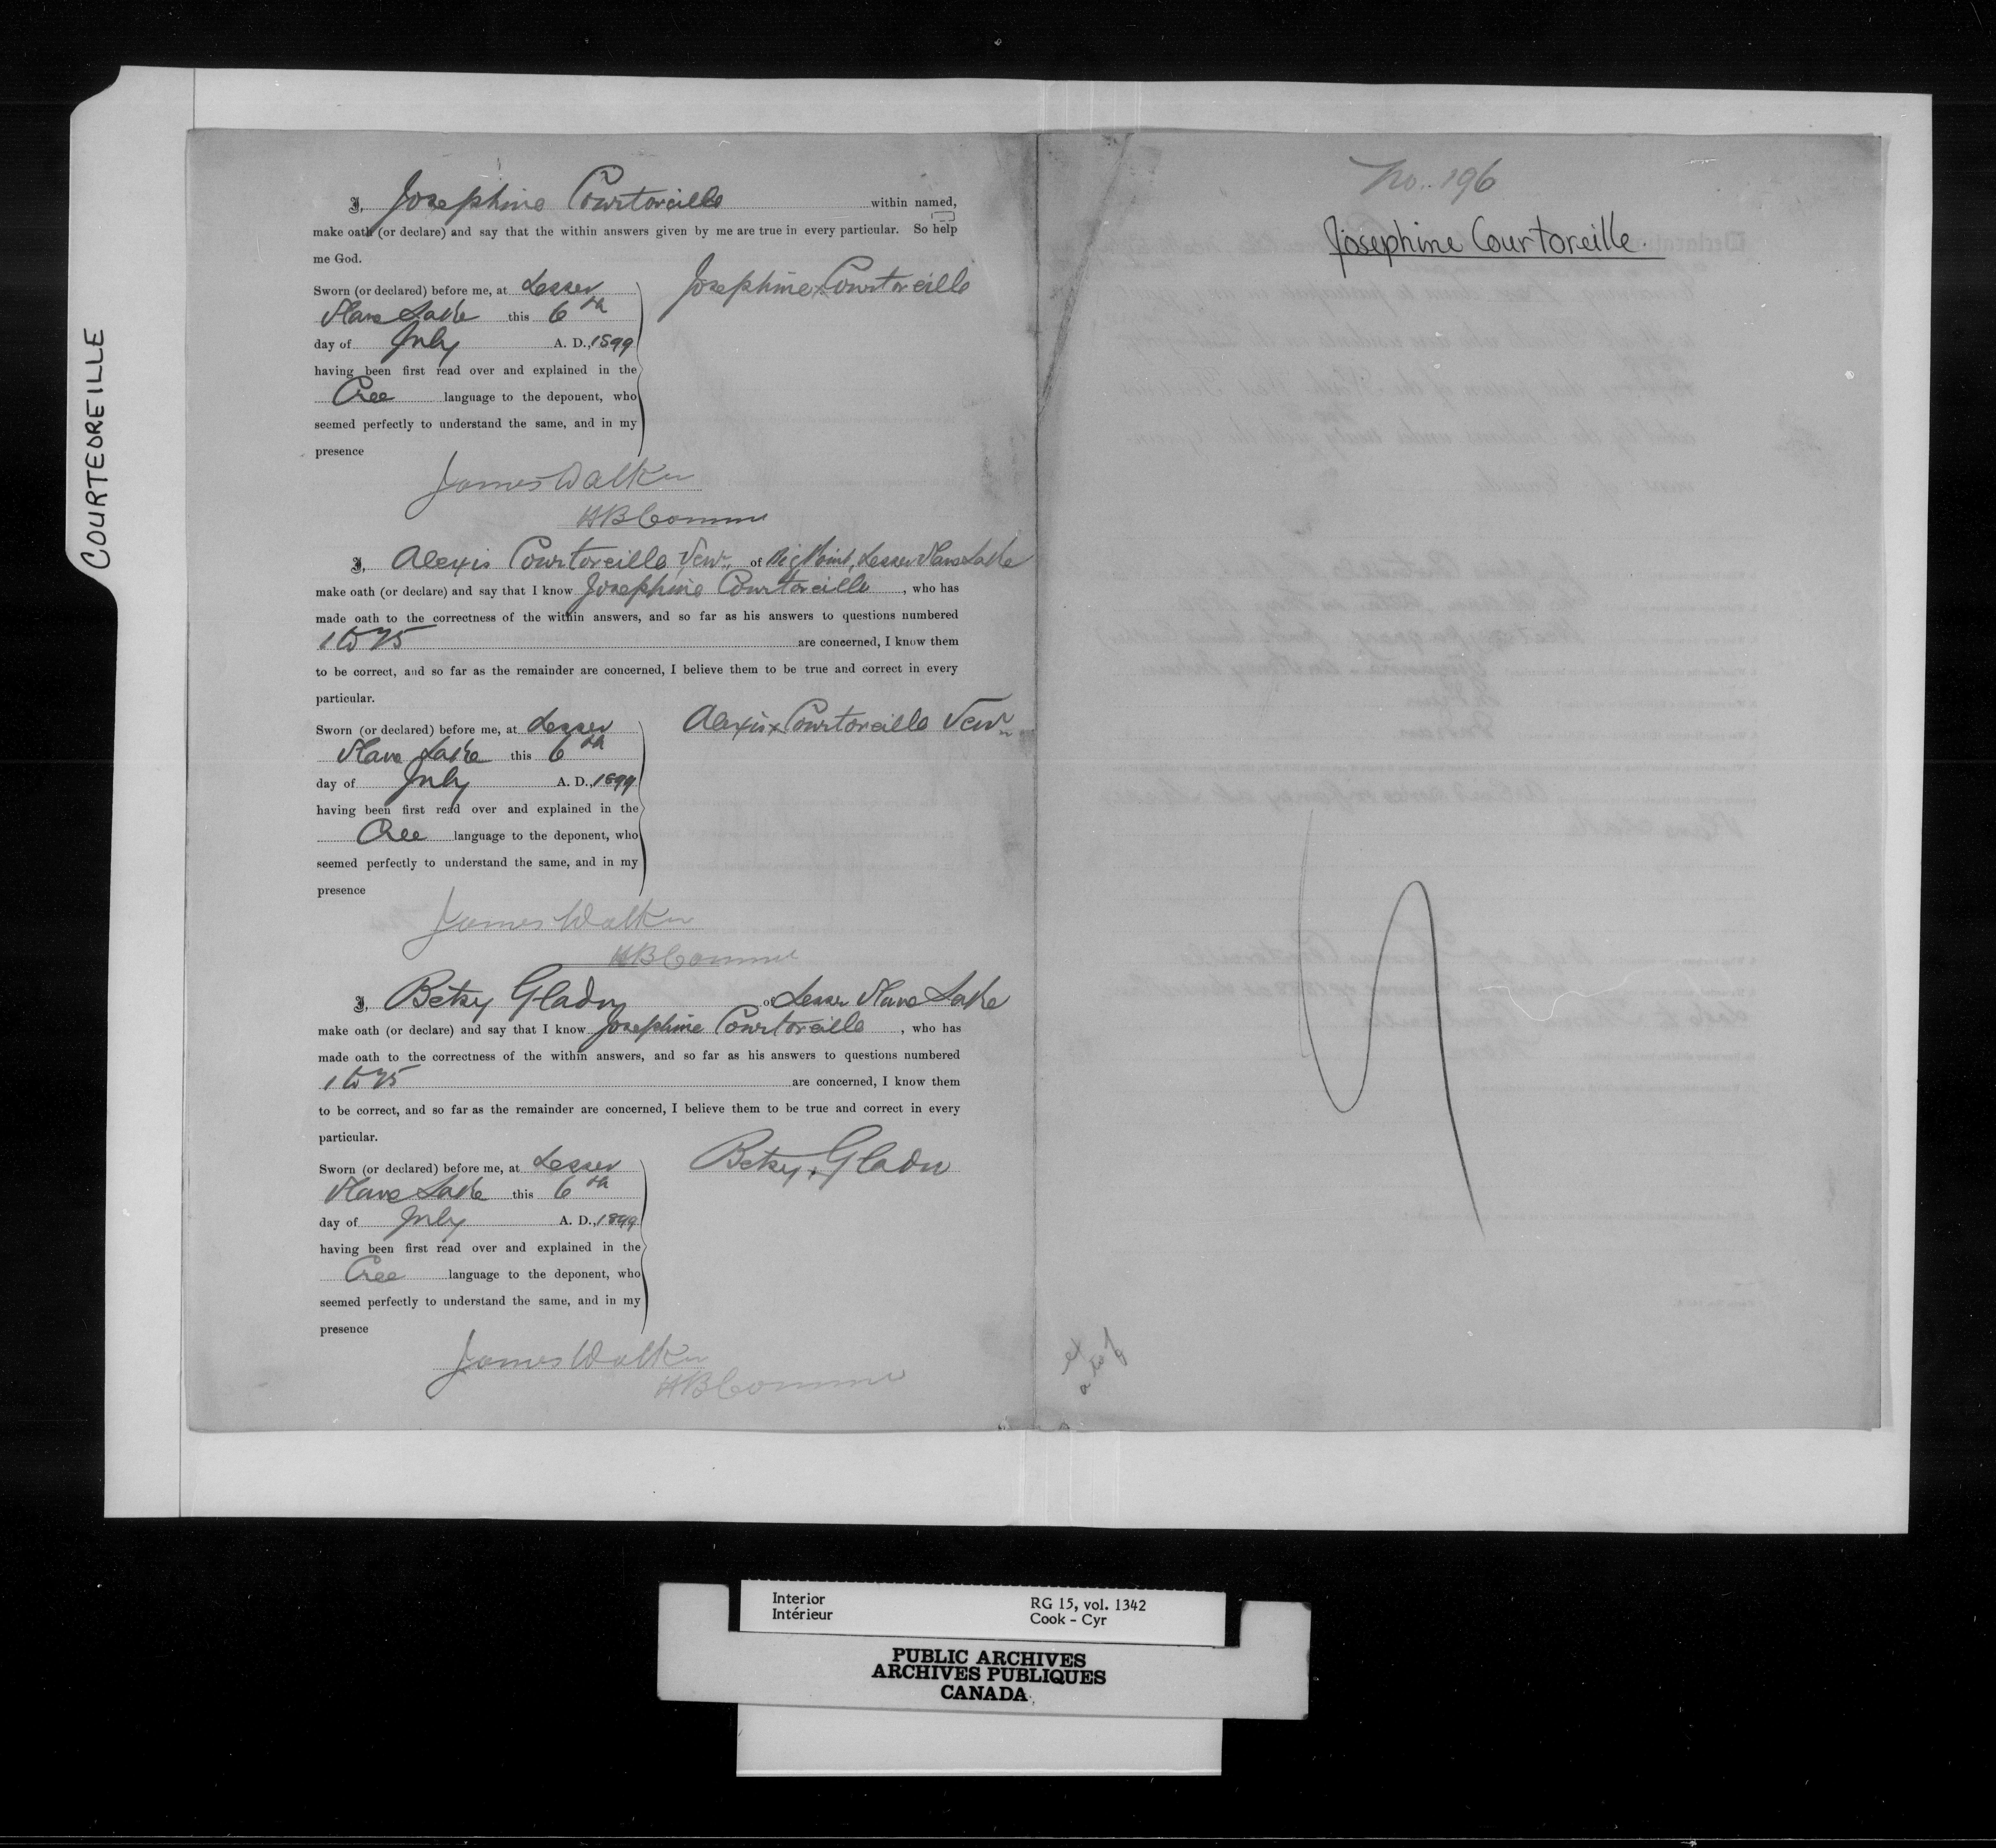 COURTEOREILLE
I, Josephine Courtoreille within named,
make oath (or declare) and say that the within answers given by me are true in every particular. So help
me God.
Sworn (or declared) before me, at Lesser
Slave Lake this 6th
day of July A. D., 1899
having been first read over and explained in the
Cree language to the deponent, who
seemed perfectly to understand the same, and in my
presence
Josephine x Courtoreille
James Walker
HB Comm
I, Alexis Courtoreille Senr. of Big Point, Lesser Slave Lake
make oath (or declare) and say that I know Josephine Courtoreille, who has
made oath to the correctness of the within answers, and so far as his answers to questions numbered
1 to 25 are concerned, I know them
to be correct, and so far as the remainder are concerned, I believe them to be true and correct in every
particular.
Sworn (or declared) before me, at Lesser
Slave Lake this 6th
day of July A. D., 1899
having been first read over and explained in the
Cree language to the deponent, who
seemed perfectly to understand the same, and in my
presence
Alexis x Courtoreille Senr
James Walker
HB Comm
I, Betsy Gladu of Lesser Slave Lake
make oath (or declare) and say that I know Josephine Courtoreille, who has
made oath to the correctness of the within answers, and so far as his answers to questions numbered
1 to 25 are concerned, I know them
to be correct, and so far as the remainder are concerned, I believe them to be true and correct in every
particular.
Sworn (or declared) before me, at Lesser
Slave Lake this 6th
day of July A. D., 1899
having been first read over and explained in the
Cree language to the deponent, who
seemed perfectly to understand the same, and in my
presence
Betsy x Gladu
James Walker
HB Comm
No. 196
Josephine Courtoreille.
Interior
Intérieur
RG 15, vol. 1342
Cook - Cyr
PUBLIC ARCHIVES
ARCHIVES PUBLIQUES
CANADA